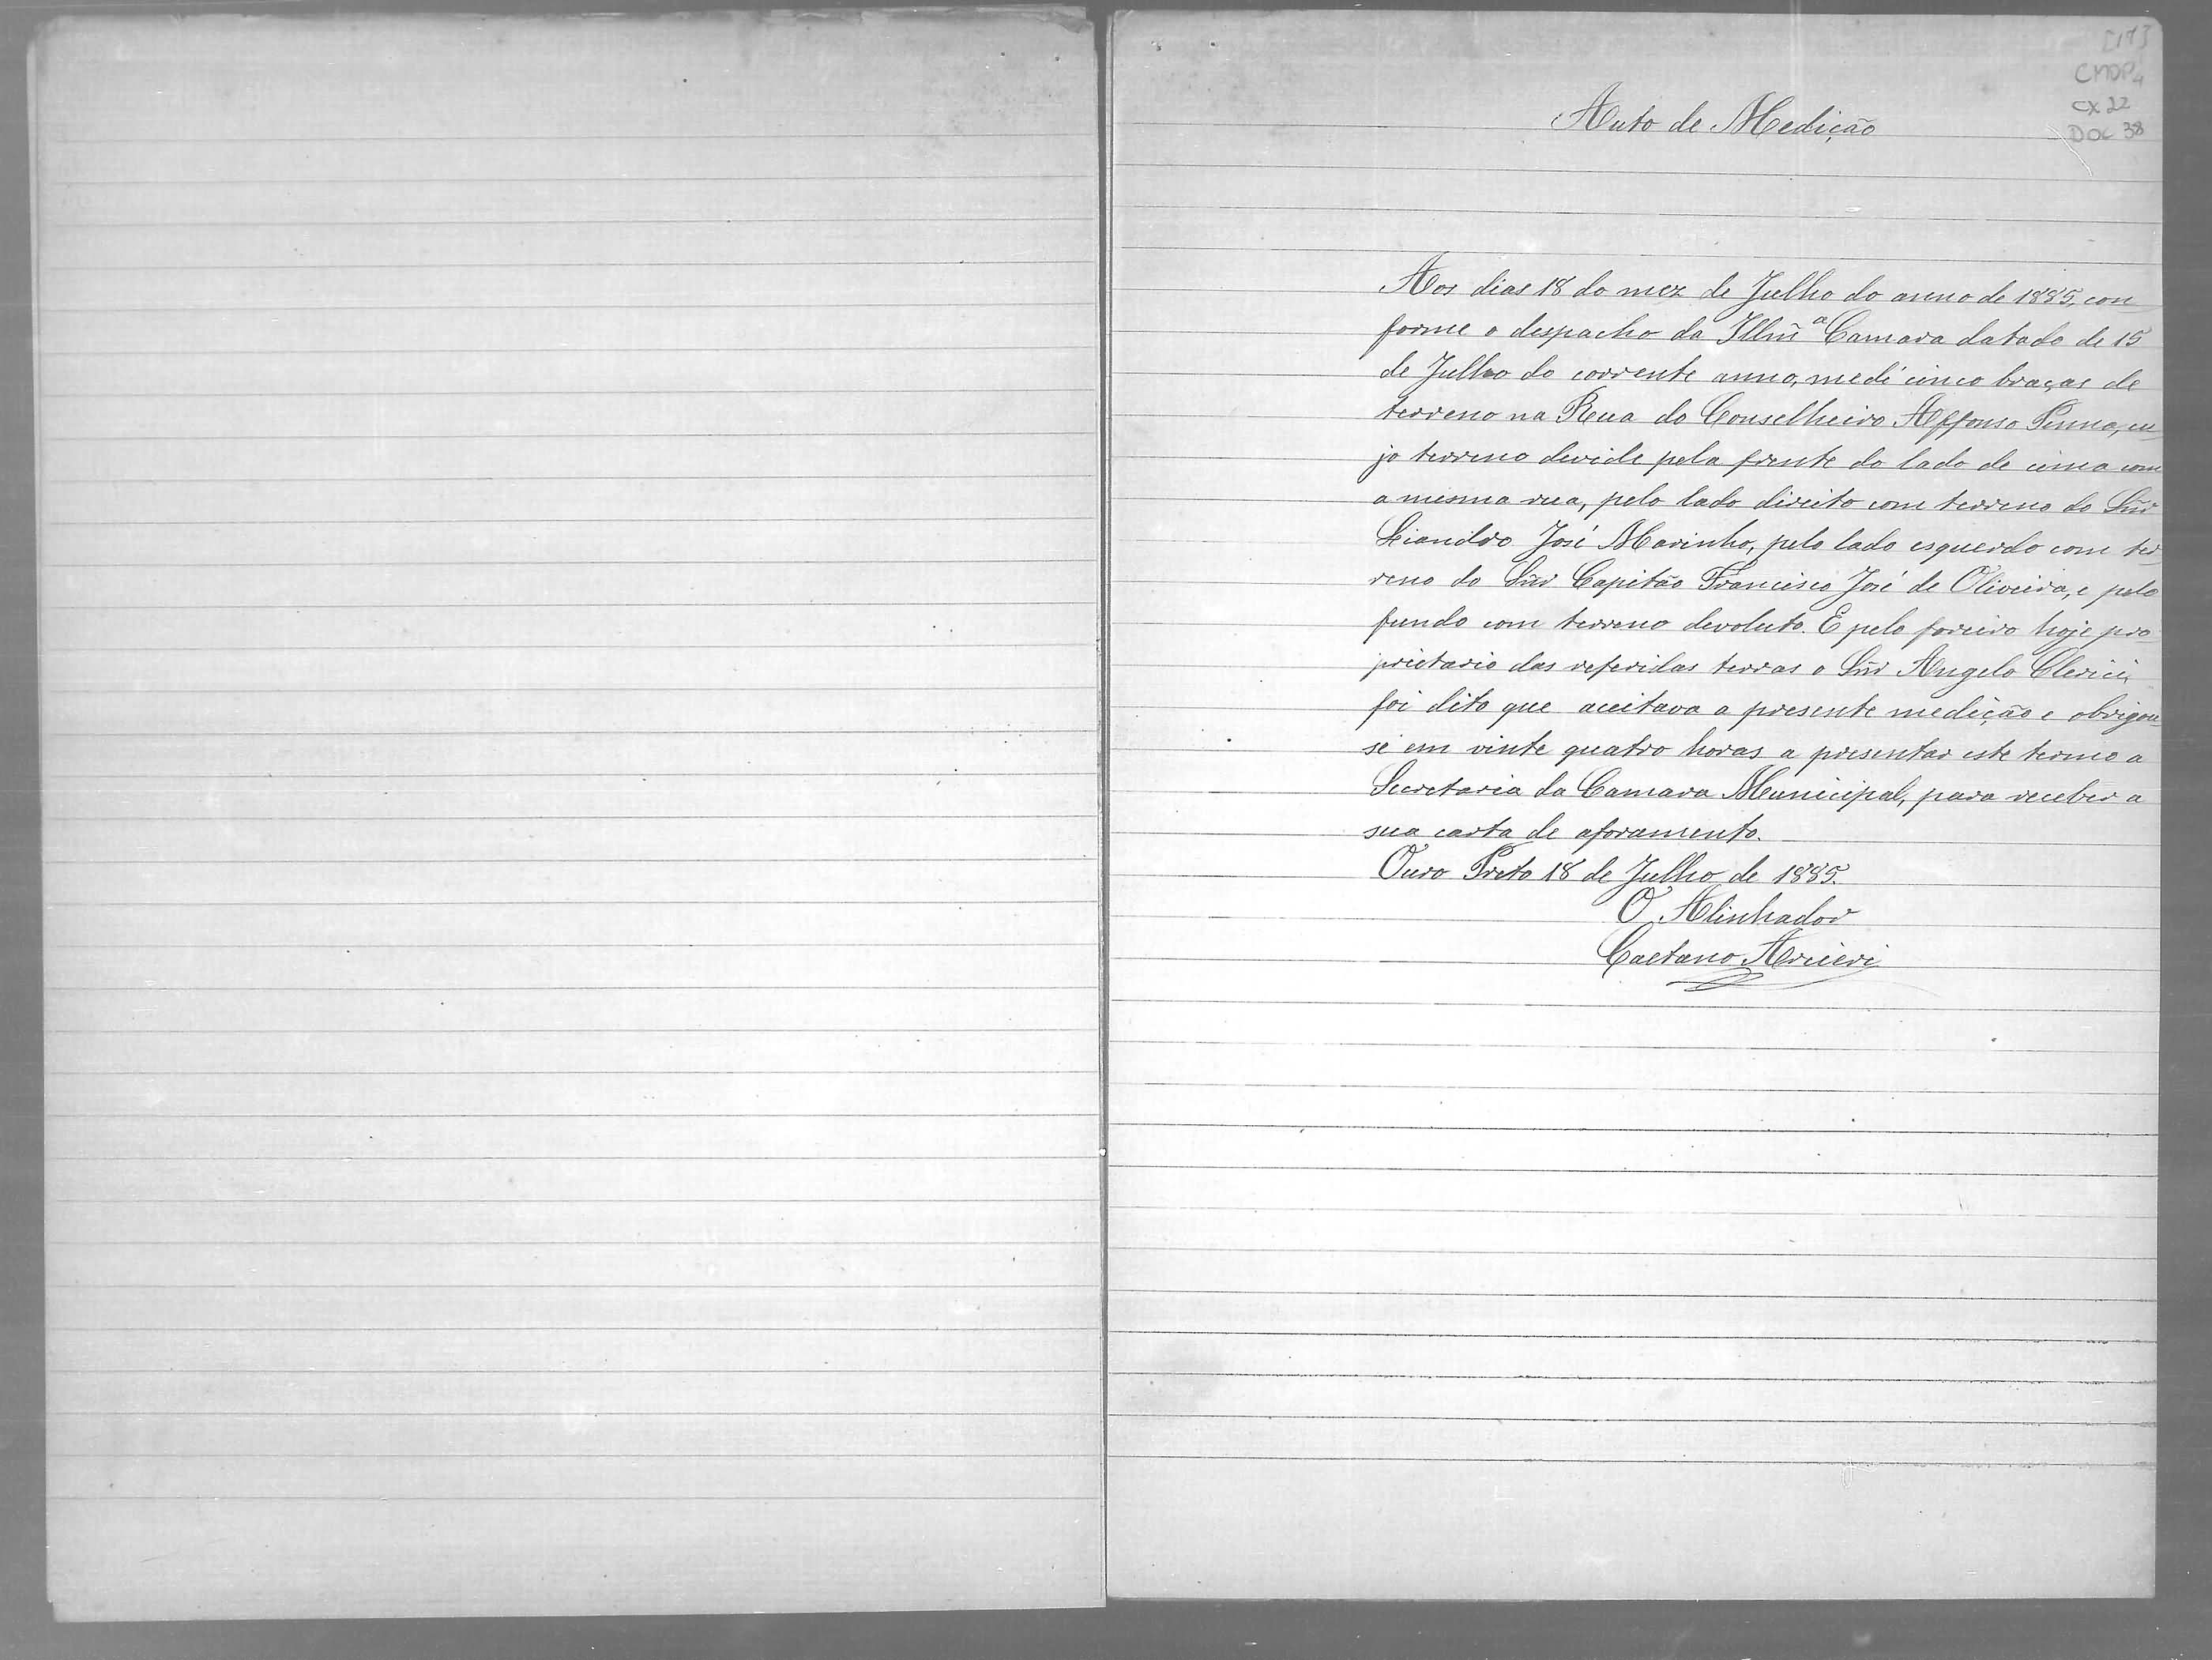 [17]
CMOP
CX 22
DOC 38
Auto de Medição
Aos dias 18 do mez de Julho do anno de 1885, con
forme o despacho da Illm̃ª Camara datado de 15
de Julho do corrente anno, medi cinco braças de
terreno na Rua do Conselheiro Affonso Penna, cu-
jo terreno devide pela frente do lado de cima com
a mesma rua, pelo lado direito com terreno do Sñr
Liandro José Marinho, pelo lado esquerdo com ter-
reno do Sñr Capitão Francisco José de Oliveira, e pelo
fundo com terreno devoluto. E pelo foreiro hoje pro-
prietario das referidas terras o Sñr Angelo Clerici,
foi dito que aceitava a presente medição e obrigou-
se em vinte quatro horas a presentar este termo a
Secretaria da Camara Municipal, para receber a
sua carta de aforamento.
Ouro Preto 18 de Julho de 1885.
O Alinhador
Caetano Arcieri